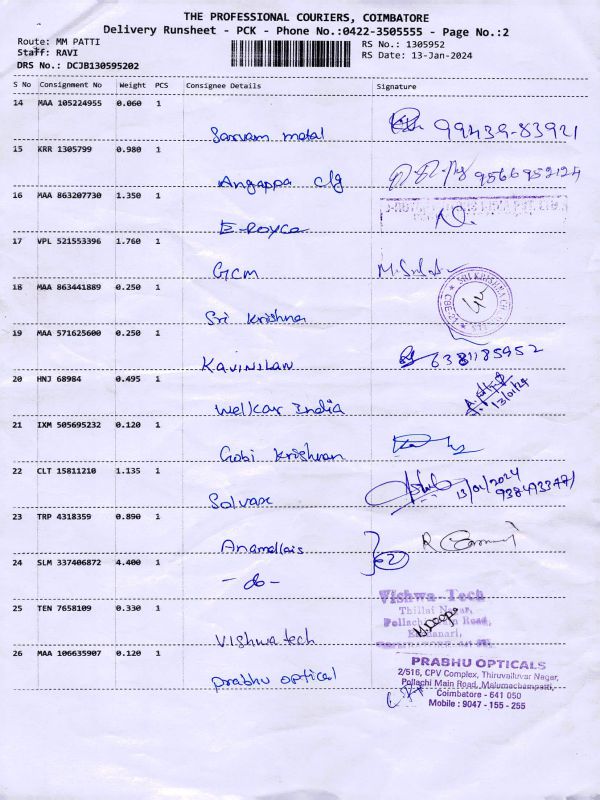 THE PROFESSIONAL COURIERS, COIMBATORE
Delivery Runsheet - PCK - Phone No.:0422-3505555 - Page No.:2
Route: MM PATTI
Staff: RAVI
DRS No.: DCJB130595202
RS No.: 1305952
RS Date: 13-Jan-2024
S No Consignment No Weight PCS Consignee Details Signature
14 MAA 105224955 0.060 1
Sarvam metal 99439-83921
15 KRR 1305799 0.980 1
Angappa clg 9566952124
16 MAA 863207730 1.350 1
E-Royce
17 VPL 521553396 1.760 1
GCM
18 MAA 863441889 0.250 1
Sri Krishna
19 MAA 571625600 0.250 1
Kavinilan 6381185952
20 HNJ 68984 0.495 1
Welkar India 13/01/24
21 IXM 505695232 0.120 1
Gobi Krishnan
22 CLT 15811210 1.135 1
Salvare 13/01/2024
23 TRP 4318359 0.890 1
Anamallais
24 SLM 337406872 4.400 1
- do -
25 TEN 7658109 0.330 1
Vishwa tech
Vishwa Tech
Thillai Nagar,
Pollachi Main Road,
26 MAA 106635907 0.120 1
Prabhu optical
PRABHU OPTICALS
2/516, CPV Complex, Thiruvalluvar Nagar,
Pollachi Main Road, Malumachampatti,
Coimbatore - 641 050
Mobile : 9047 - 155 - 255